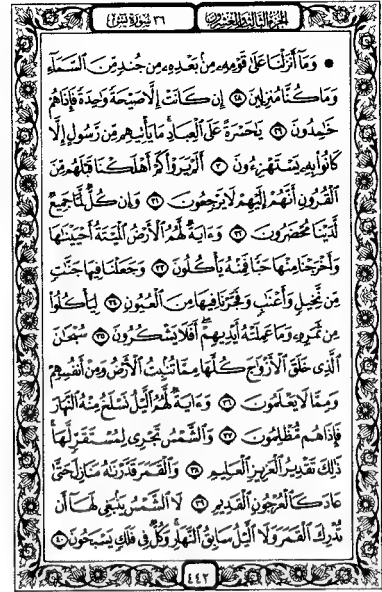 الجزء الثالث والعشرون ٣٦ سورة يس
۞ وَمَا أَنزَلْنَا عَلَىٰ قَوْمِهِ مِنۢ بَعْدِهِ مِن جُندٍ مِّنَ السَّمَاءِ
وَمَا كُنَّا مُنزِلِينَ ٢٨ إِن كَانَتْ إِلَّا صَيْحَةً وَاحِدَةً فَإِذَا هُمْ
خَامِدُونَ ٢٩ يَا حَسْرَةً عَلَى الْعِبَادِ مَا يَأْتِيهِم مِّن رَّسُولٍ إِلَّا
كَانُوا بِهِ يَسْتَهْزِءُونَ ٣٠ أَلَمْ يَرَوْا كَمْ أَهْلَكْنَا قَبْلَهُم مِّنَ
الْقُرُونِ أَنَّهُمْ إِلَيْهِمْ لَا يَرْجِعُونَ ٣١ وَإِن كُلٌّ لَّمَّا جَمِيعٌ
لَّدَيْنَا مُحْضَرُونَ ٣٢ وَءَايَةٌ لَّهُمُ الْأَرْضُ الْمَيْتَةُ أَحْيَيْنَاهَا
وَأَخْرَجْنَا مِنْهَا حَبًّا فَمِنْهُ يَأْكُلُونَ ٣٣ وَجَعَلْنَا فِيهَا جَنَّاتٍ
مِّن نَّخِيلٍ وَأَعْنَابٍ وَفَجَّرْنَا فِيهَا مِنَ الْعُيُونِ ٣٤ لِيَأْكُلُوا
مِن ثَمَرِهِ وَمَا عَمِلَتْهُ أَيْدِيهِمْ أَفَلَا يَشْكُرُونَ ٣٥ سُبْحَانَ
الَّذِي خَلَقَ الْأَزْوَاجَ كُلَّهَا مِمَّا تُنۢبِتُ الْأَرْضُ وَمِنْ أَنفُسِهِمْ
وَمِمَّا لَا يَعْلَمُونَ ٣٦ وَءَايَةٌ لَّهُمُ اللَّيْلُ نَسْلَخُ مِنْهُ النَّهَارَ
فَإِذَا هُم مُّظْلِمُونَ ٣٧ وَالشَّمْسُ تَجْرِي لِمُسْتَقَرٍّ لَّهَا
ذَٰلِكَ تَقْدِيرُ الْعَزِيزِ الْعَلِيمِ ٣٨ وَالْقَمَرَ قَدَّرْنَاهُ مَنَازِلَ حَتَّىٰ
عَادَ كَالْعُرْجُونِ الْقَدِيمِ ٣٩ لَا الشَّمْسُ يَنۢبَغِي لَهَا أَن
تُدْرِكَ الْقَمَرَ وَلَا اللَّيْلُ سَابِقُ النَّهَارِ وَكُلٌّ فِي فَلَكٍ يَسْبَحُونَ ٤٠
٤٤٢